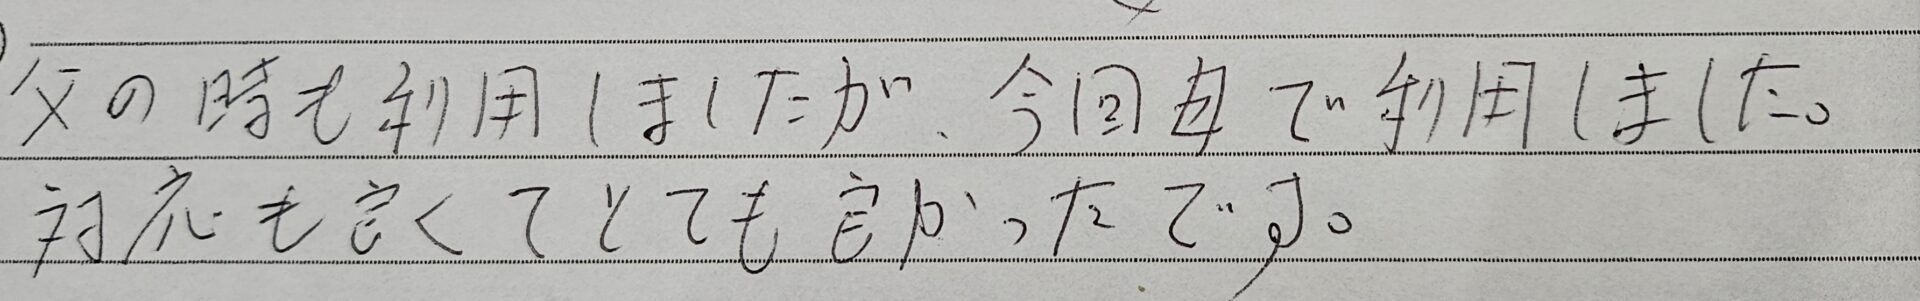 父の時も利用しましたが、今回母で利用しました。
対応も良くてとても良かったです。